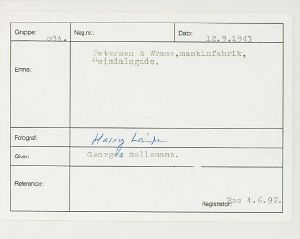 Gruppe: 08A. Neg.nr.: Dato: 12.9.1943
Emne: Petersen & Wraae, maskinfabrik,
Heimdalsgade.
Fotograf: Harry
Giver: Georges
Referencer:
Registrator: 4.6.92.